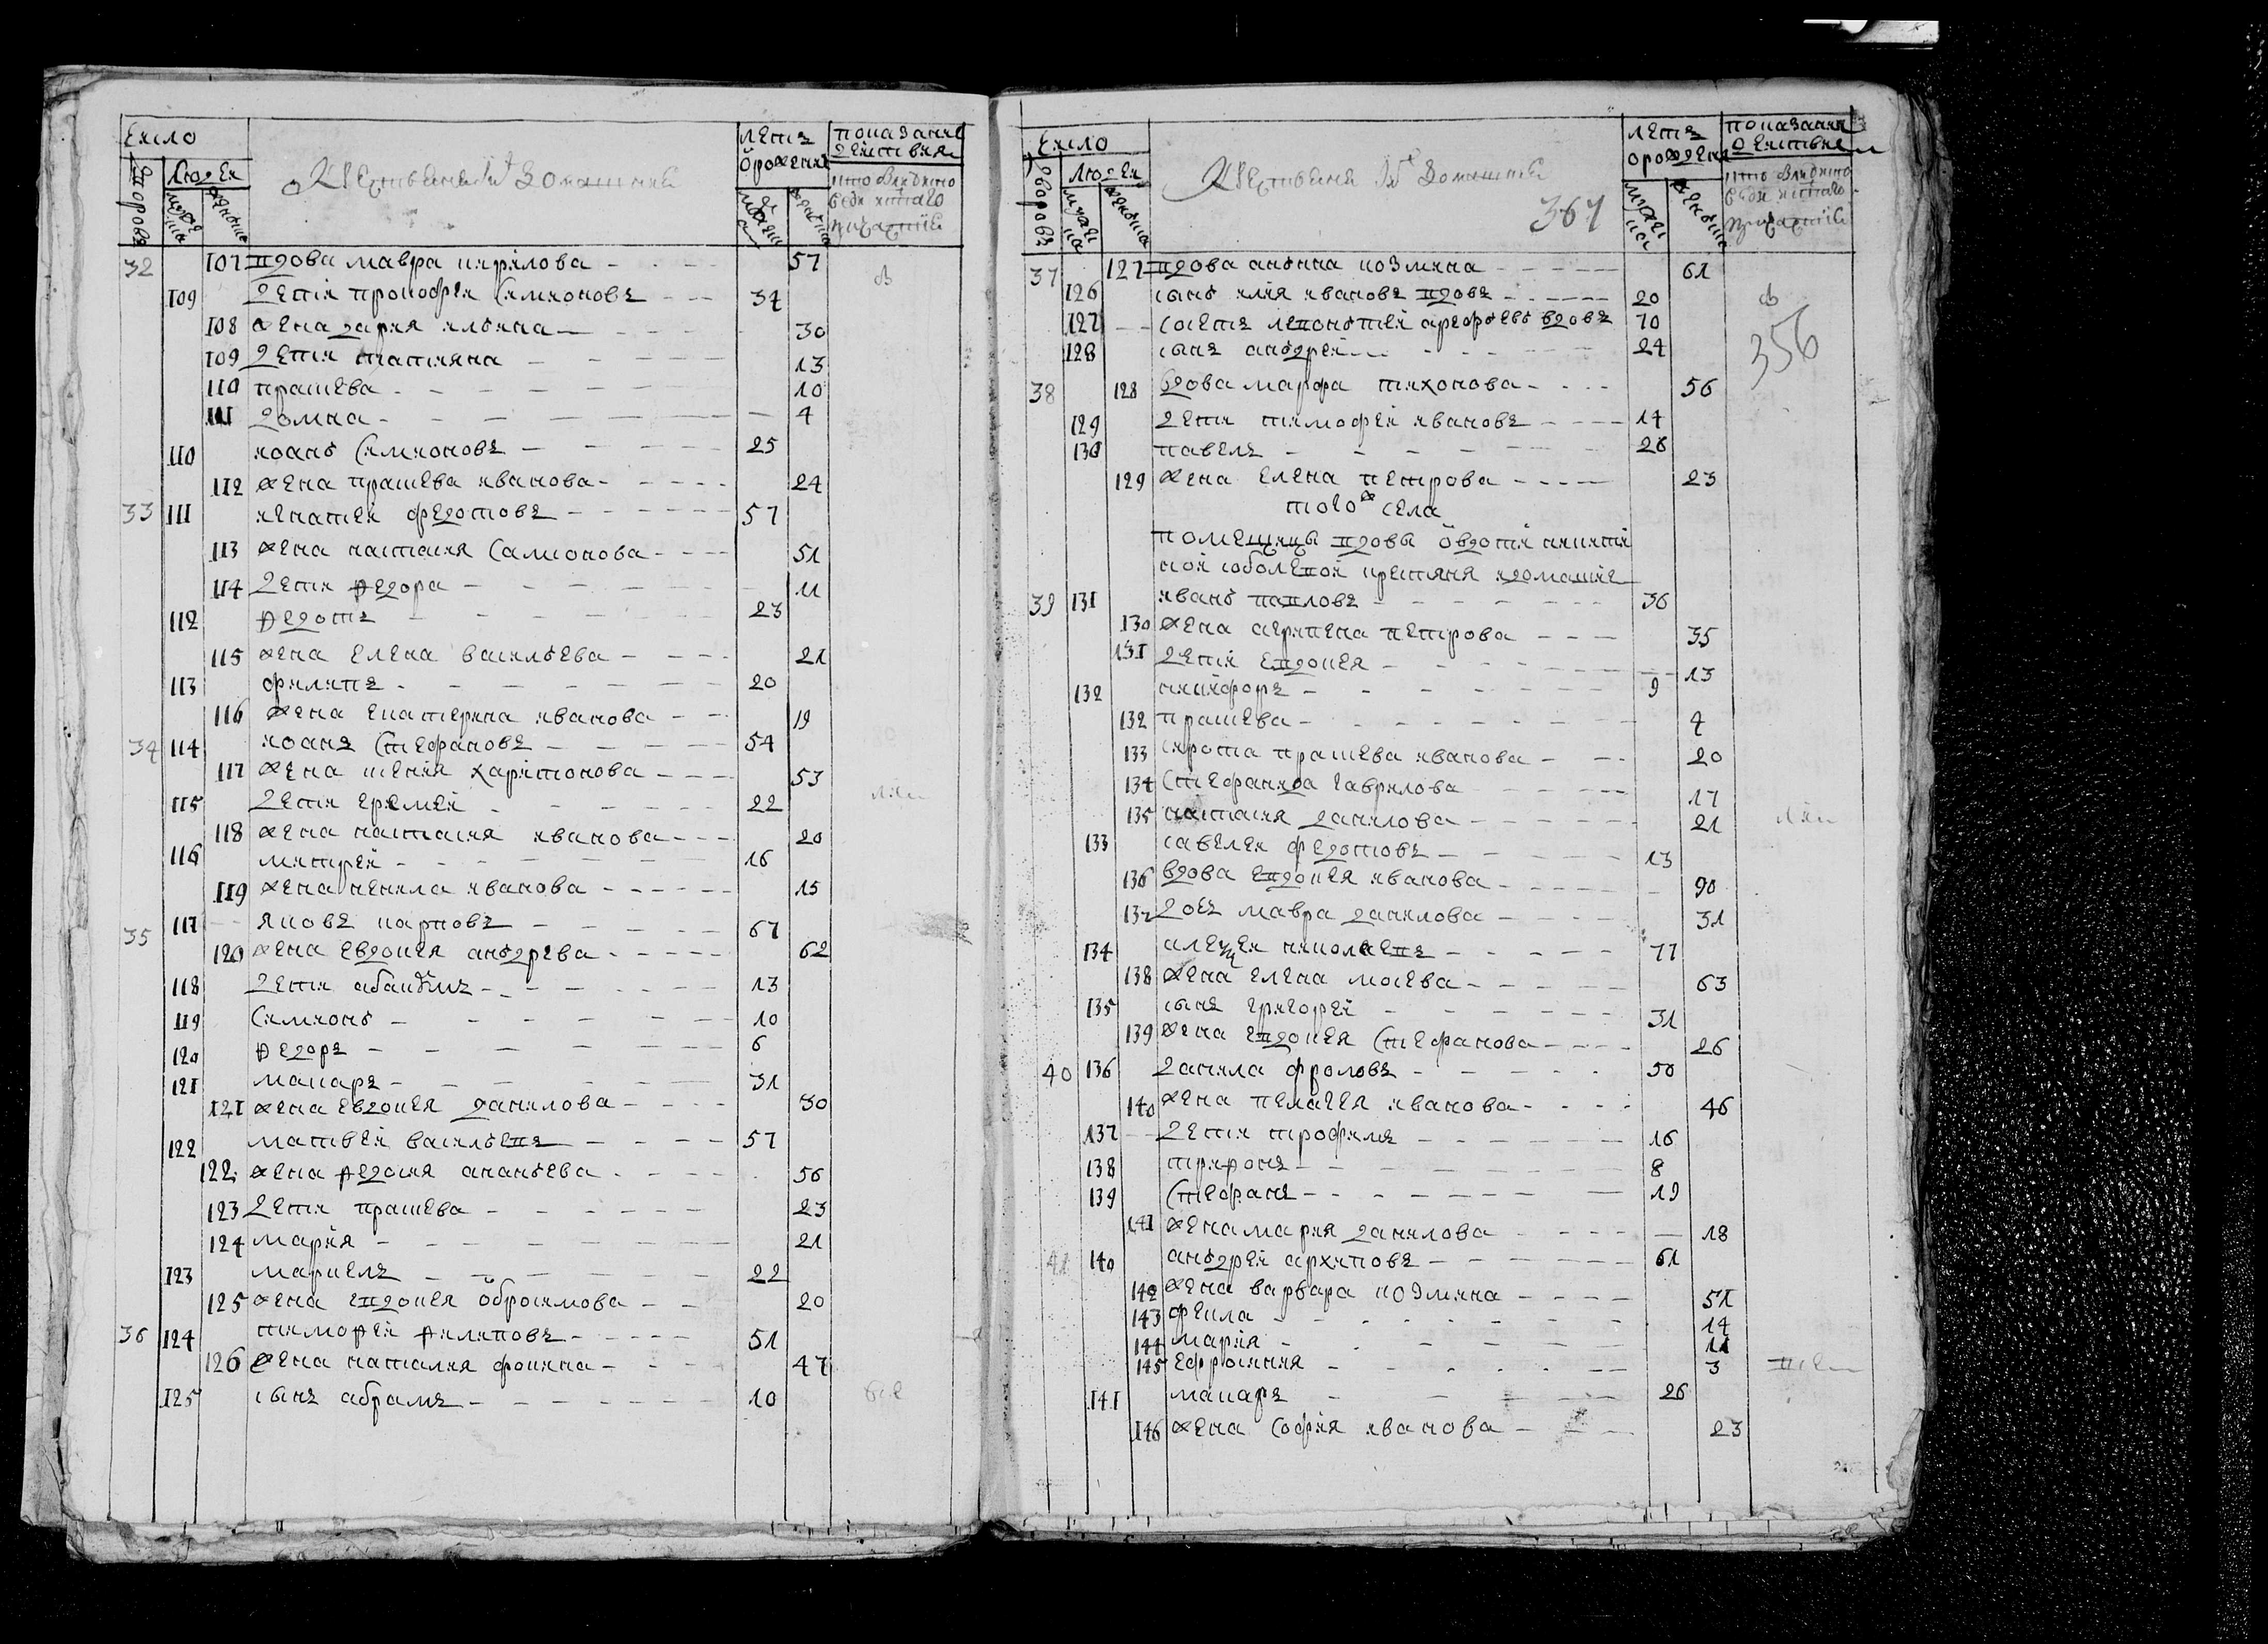 число
лета
показание
людей
от рождения
действия
107 вдова мавра кирилова 57
32
109 дети прокофей симионовъ 37
108 жена дария илина 30
109 дети татияна 13
110 прасева 10
111 домна 4
110 иоанъ симионовъ 25
112 жена прасева иванова 24
33 111 игнатей федотовъ 57
113 жена наталия самсонова 51
114 дети федора 11
112 федотъ 23
115 жена елена василева 21
113 филипъ 20
116 жена екатерина иванова 19
34 114 иоанъ стефановъ 54
117 жена ксения харитонова 53
115 дети еремей 22
118 жена наталия иванова 20
116 митрей 16
119 жена ненила иванова 15
35 117 яковъ карповъ 67
120 жена евдокея андрева 62
118 дети абакумъ 13
119 симионъ 10
120 федоръ 6
121 макаръ 31
121 жена евдокея данилова 30
122 матвей василевъ 57
122 жена федосия ананьева 56
123 дети прасева 23
124 мария 21
123 маркелъ 22
125 жена евдокея обросимова 20
36 124 тимофей филиповъ 51
126 жена наталия фокина 47
125 сынъ абрамъ 10
число
крестьяня и домашнии
лета
показание
людей
от рождения
действия
367
37 127 вдова анна козмина 61
126 сынъ илия ивановъ вдовъ 20
127 вдовъ 70
128 сынъ андрей 24
356
38 128 вдова марфа тихонова 56
129 дети тимофей ивановъ 17
130 павелъ 26
129 жена елена петрова 23
того ж села
помещицы вдовы овдоти никити
ной соболевой крестяня и домашние
39 131 иванъ павловъ 36
130 жена агрипена петрова 35
131 дети евдокея 13
132 никифоръ 9
132 прасева 7
133 сирота прасева иванова 20
134 стефанида гаврилова 17
135 наталия данилова 21
133 савелей федотовъ 13
136 вдова евдокея иванова 90
137 дочь мавра данилова 31
134 алексей николаевъ 77
138 жена елена мосева 63
135 сынъ григорей 31
139 жена евдокея стефанова 26
40 136 данила фроловъ 50
140 жена пелагея иванова 46
137 дети трофимъ 16
138 трифонъ 8
139 стефанъ 19
141 жена мария данилова 18
41 140 андрей архиповъ 61
142 жена варвара козмина 51
143 фекла 14
144 мария 11
145 ефросиния 3
141 макаръ 26
146 жена софия иванова 23